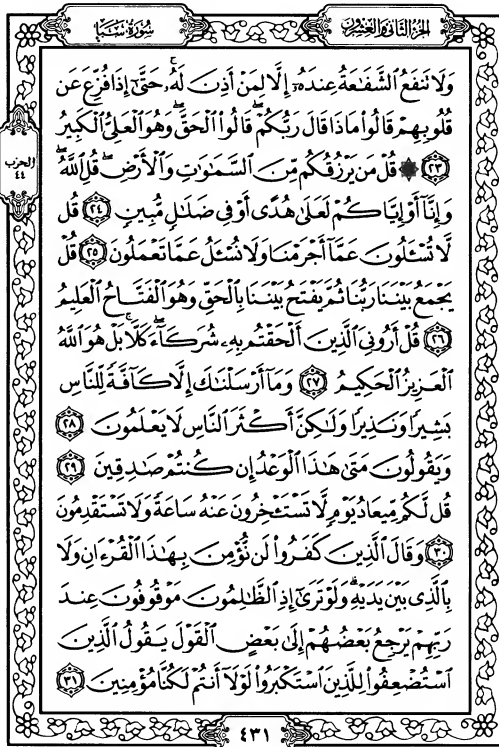 الجزء الثاني والعشرون
سورة سبإ
وَلَا تَنفَعُ ٱلشَّفَٰعَةُ عِندَهُۥٓ إِلَّا لِمَنۡ أَذِنَ لَهُۥۚ حَتَّىٰٓ إِذَا فُزِّعَ عَن
قُلُوبِهِمۡ قَالُواْ مَاذَا قَالَ رَبُّكُمۡۖ قَالُواْ ٱلۡحَقَّۖ وَهُوَ ٱلۡعَلِيُّ ٱلۡكَبِيرُ
الحزب
٤٤
٢٣ ۞ قُلۡ مَن يَرۡزُقُكُم مِّنَ ٱلسَّمَٰوَٰتِ وَٱلۡأَرۡضِۖ قُلِ ٱللَّهُۖ
وَإِنَّآ أَوۡ إِيَّاكُمۡ لَعَلَىٰ هُدًى أَوۡ فِي ضَلَٰلٖ مُّبِينٖ ٢٤ قُل
لَّا تُسۡـَٔلُونَ عَمَّآ أَجۡرَمۡنَا وَلَا نُسۡـَٔلُ عَمَّا تَعۡمَلُونَ ٢٥ قُلۡ
يَجۡمَعُ بَيۡنَنَا رَبُّنَا ثُمَّ يَفۡتَحُ بَيۡنَنَا بِٱلۡحَقِّ وَهُوَ ٱلۡفَتَّاحُ ٱلۡعَلِيمُ
٢٦ قُلۡ أَرُونِيَ ٱلَّذِينَ أَلۡحَقۡتُم بِهِۦ شُرَكَآءَۖ كَلَّاۚ بَلۡ هُوَ ٱللَّهُ
ٱلۡعَزِيزُ ٱلۡحَكِيمُ ٢٧ وَمَآ أَرۡسَلۡنَٰكَ إِلَّا كَآفَّةٗ لِّلنَّاسِ
بَشِيرٗا وَنَذِيرٗا وَلَٰكِنَّ أَكۡثَرَ ٱلنَّاسِ لَا يَعۡلَمُونَ ٢٨
وَيَقُولُونَ مَتَىٰ هَٰذَا ٱلۡوَعۡدُ إِن كُنتُمۡ صَٰدِقِينَ ٢٩
قُل لَّكُم مِّيعَادُ يَوۡمٖ لَّا تَسۡتَـٔۡخِرُونَ عَنۡهُ سَاعَةٗ وَلَا تَسۡتَقۡدِمُونَ
٣٠ وَقَالَ ٱلَّذِينَ كَفَرُواْ لَن نُّؤۡمِنَ بِهَٰذَا ٱلۡقُرۡءَانِ وَلَا
بِٱلَّذِي بَيۡنَ يَدَيۡهِۗ وَلَوۡ تَرَىٰٓ إِذِ ٱلظَّٰلِمُونَ مَوۡقُوفُونَ عِندَ
رَبِّهِمۡ يَرۡجِعُ بَعۡضُهُمۡ إِلَىٰ بَعۡضٍ ٱلۡقَوۡلَ يَقُولُ ٱلَّذِينَ
ٱسۡتُضۡعِفُواْ لِلَّذِينَ ٱسۡتَكۡبَرُواْ لَوۡلَآ أَنتُمۡ لَكُنَّا مُؤۡمِنِينَ ٣١
٤٣١